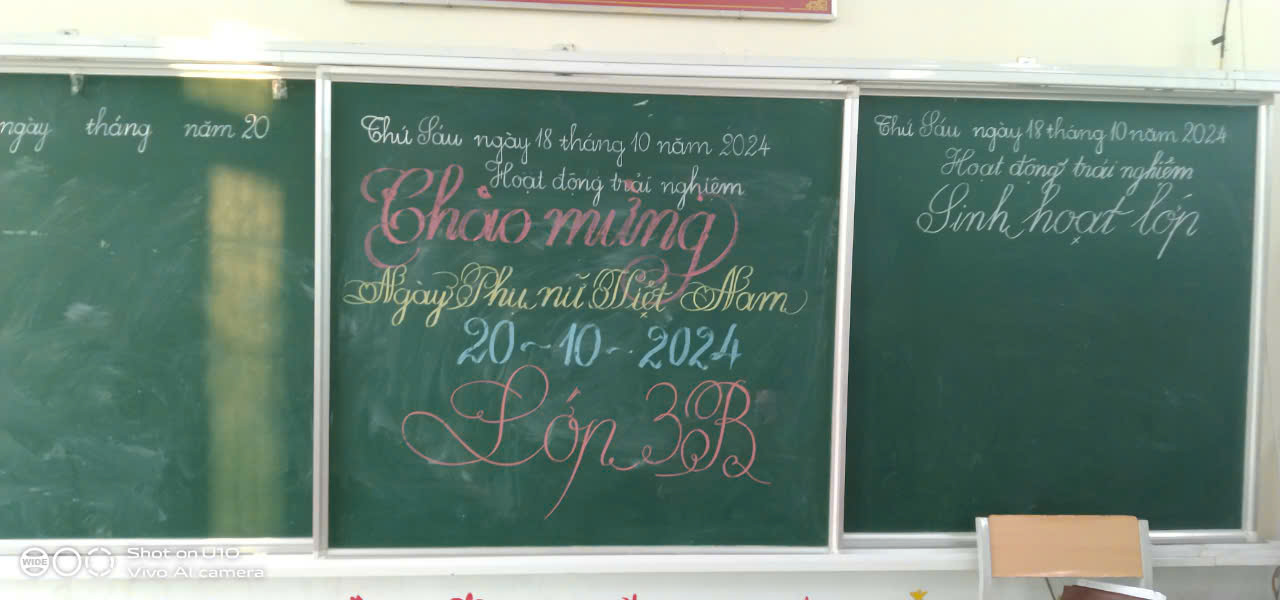 ngày tháng năm 20
Thứ Sáu ngày 18 tháng 10 năm 2024
Hoạt động trải nghiệm
Chào mừng
Ngày Phụ nữ Việt Nam
20 - 10 - 2024
Lớp 3B
Thứ Sáu ngày 18 tháng 10 năm 2024
Hoạt động trải nghiệm
Sinh hoạt lớp
WIDE
Shot on U10
Vivo AI camera